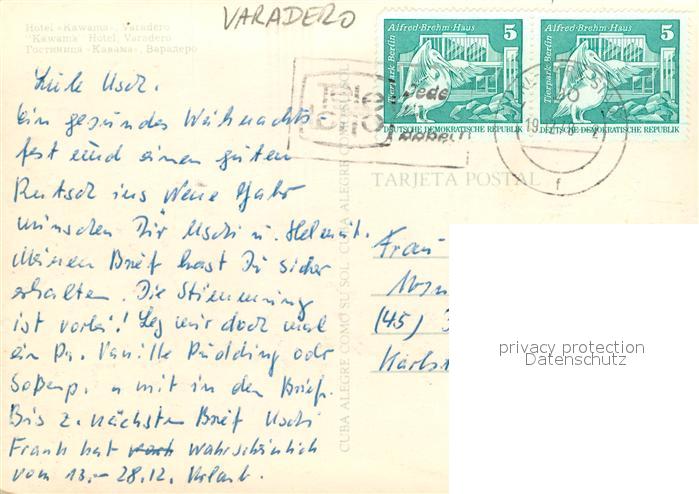 Hotel «Kawama», Varadero
"Kawama" Hotel, Varadero
Гостиница «Кавама», Варадеро
VARADERO
Alfred-Brehm-Haus 5
Tierpark Berlin
DEUTSCHE DEMOKRATISCHE REPUBLIK
Alfred-Brehm-Haus 5
Tierpark Berlin
DEUTSCHE DEMOKRATISCHE REPUBLIK
TARJETA POSTAL
CUBA ALEGRE COMO SU SOL CUBA ALEGRE COMO SU SOL
Liebe Usch.
Ein gesundes Weihnachts-
fest und einen guten
Rutsch ins Neue Jahr
wünschen Dir Uschi u. Helmut.
Meinen Brief hast Du sicher
erhalten. Die Stimmung
ist vorbei! Leg mir doch mal
ein Pr. Vanille Pudding oder
Soßenp. u mit in den Brief.
Bis z. nächsten Brief Uschi
Frank hat wahrscheinlich
vom 13.- 28.12. Urlaub.
Frau
(45)
privacy protection
Datenschutz